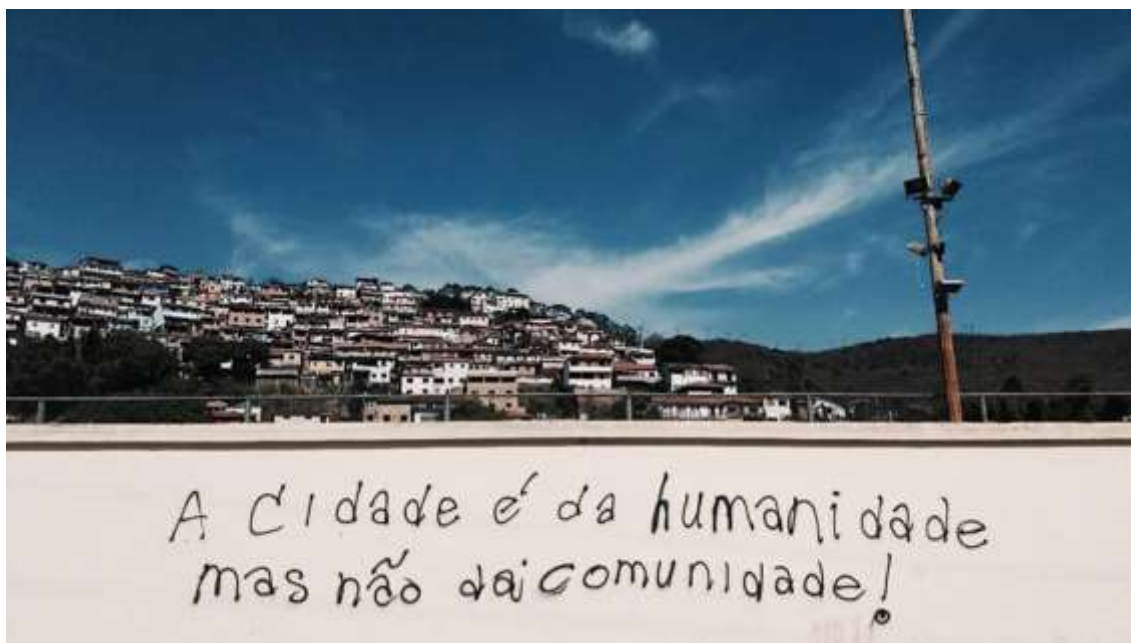 A cidade é da humanidade
mas não da comunidade!